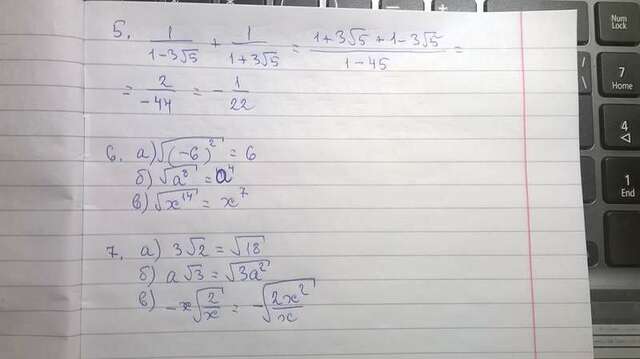 5. 1/(1-3√5) + 1/(1+3√5) = (1+3√5+1-3√5)/(1-45) =
= 2/(-44) = -1/22
6. а) √(-6)² = 6
б) √a⁸ = a⁴
в) √x¹⁴ = x⁷
7. а) 3√2 = √18
б) a√3 = √3a²
в) -x√(2/x) = -√(2x²/x)
Num
Lock
7
Home
4
1
End